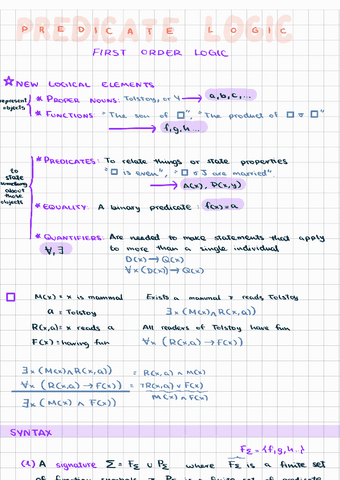 PREDICATE LOGIC
FIRST ORDER LOGIC
☆ NEW LOGICAL ELEMENTS
represent objects
* PROPER NOUNS: Tolstoy, or 4 → a,b,c,...
* FUNCTIONS: "The son of □", "The product of □ □"
→ f,g,h...
to state something about those objects
* PREDICATES: To relate things or state properties
"□ is even", "□ J are married"
→ A(x), P(x,y)
* EQUALITY: A binary predicate: f(x)=a
* QUANTIFIERS: Are needed to make statements that apply
∀,∃ to more than a single individual
D(x) → Q(x)
∀x (D(x)) → Q(x)
□ M(x) = x is mammal Exists a mammal r reads Tolstoy
a = Tolstoy ∃x (M(x)∧R(x,a))
R(x,a) = x reads a All readers of Tolstoy have fun
F(x) = having fun ∀x (R(x,a) → F(x))
∃x (M(x)∧R(x,a)) = R(x,a) ∧ M(x)
∀x (R(x,a) → F(x)) = ¬R(x,a) ∨ F(x)
∃x (M(x) ∧ F(x)) M(x) ∧ F(x)
SYNTAX
F_Σ = {f,g,h..}
A signature Σ = F_Σ ∪ P_Σ where F_Σ is a finite set
of function symbols P_Σ is a finite set of predicate